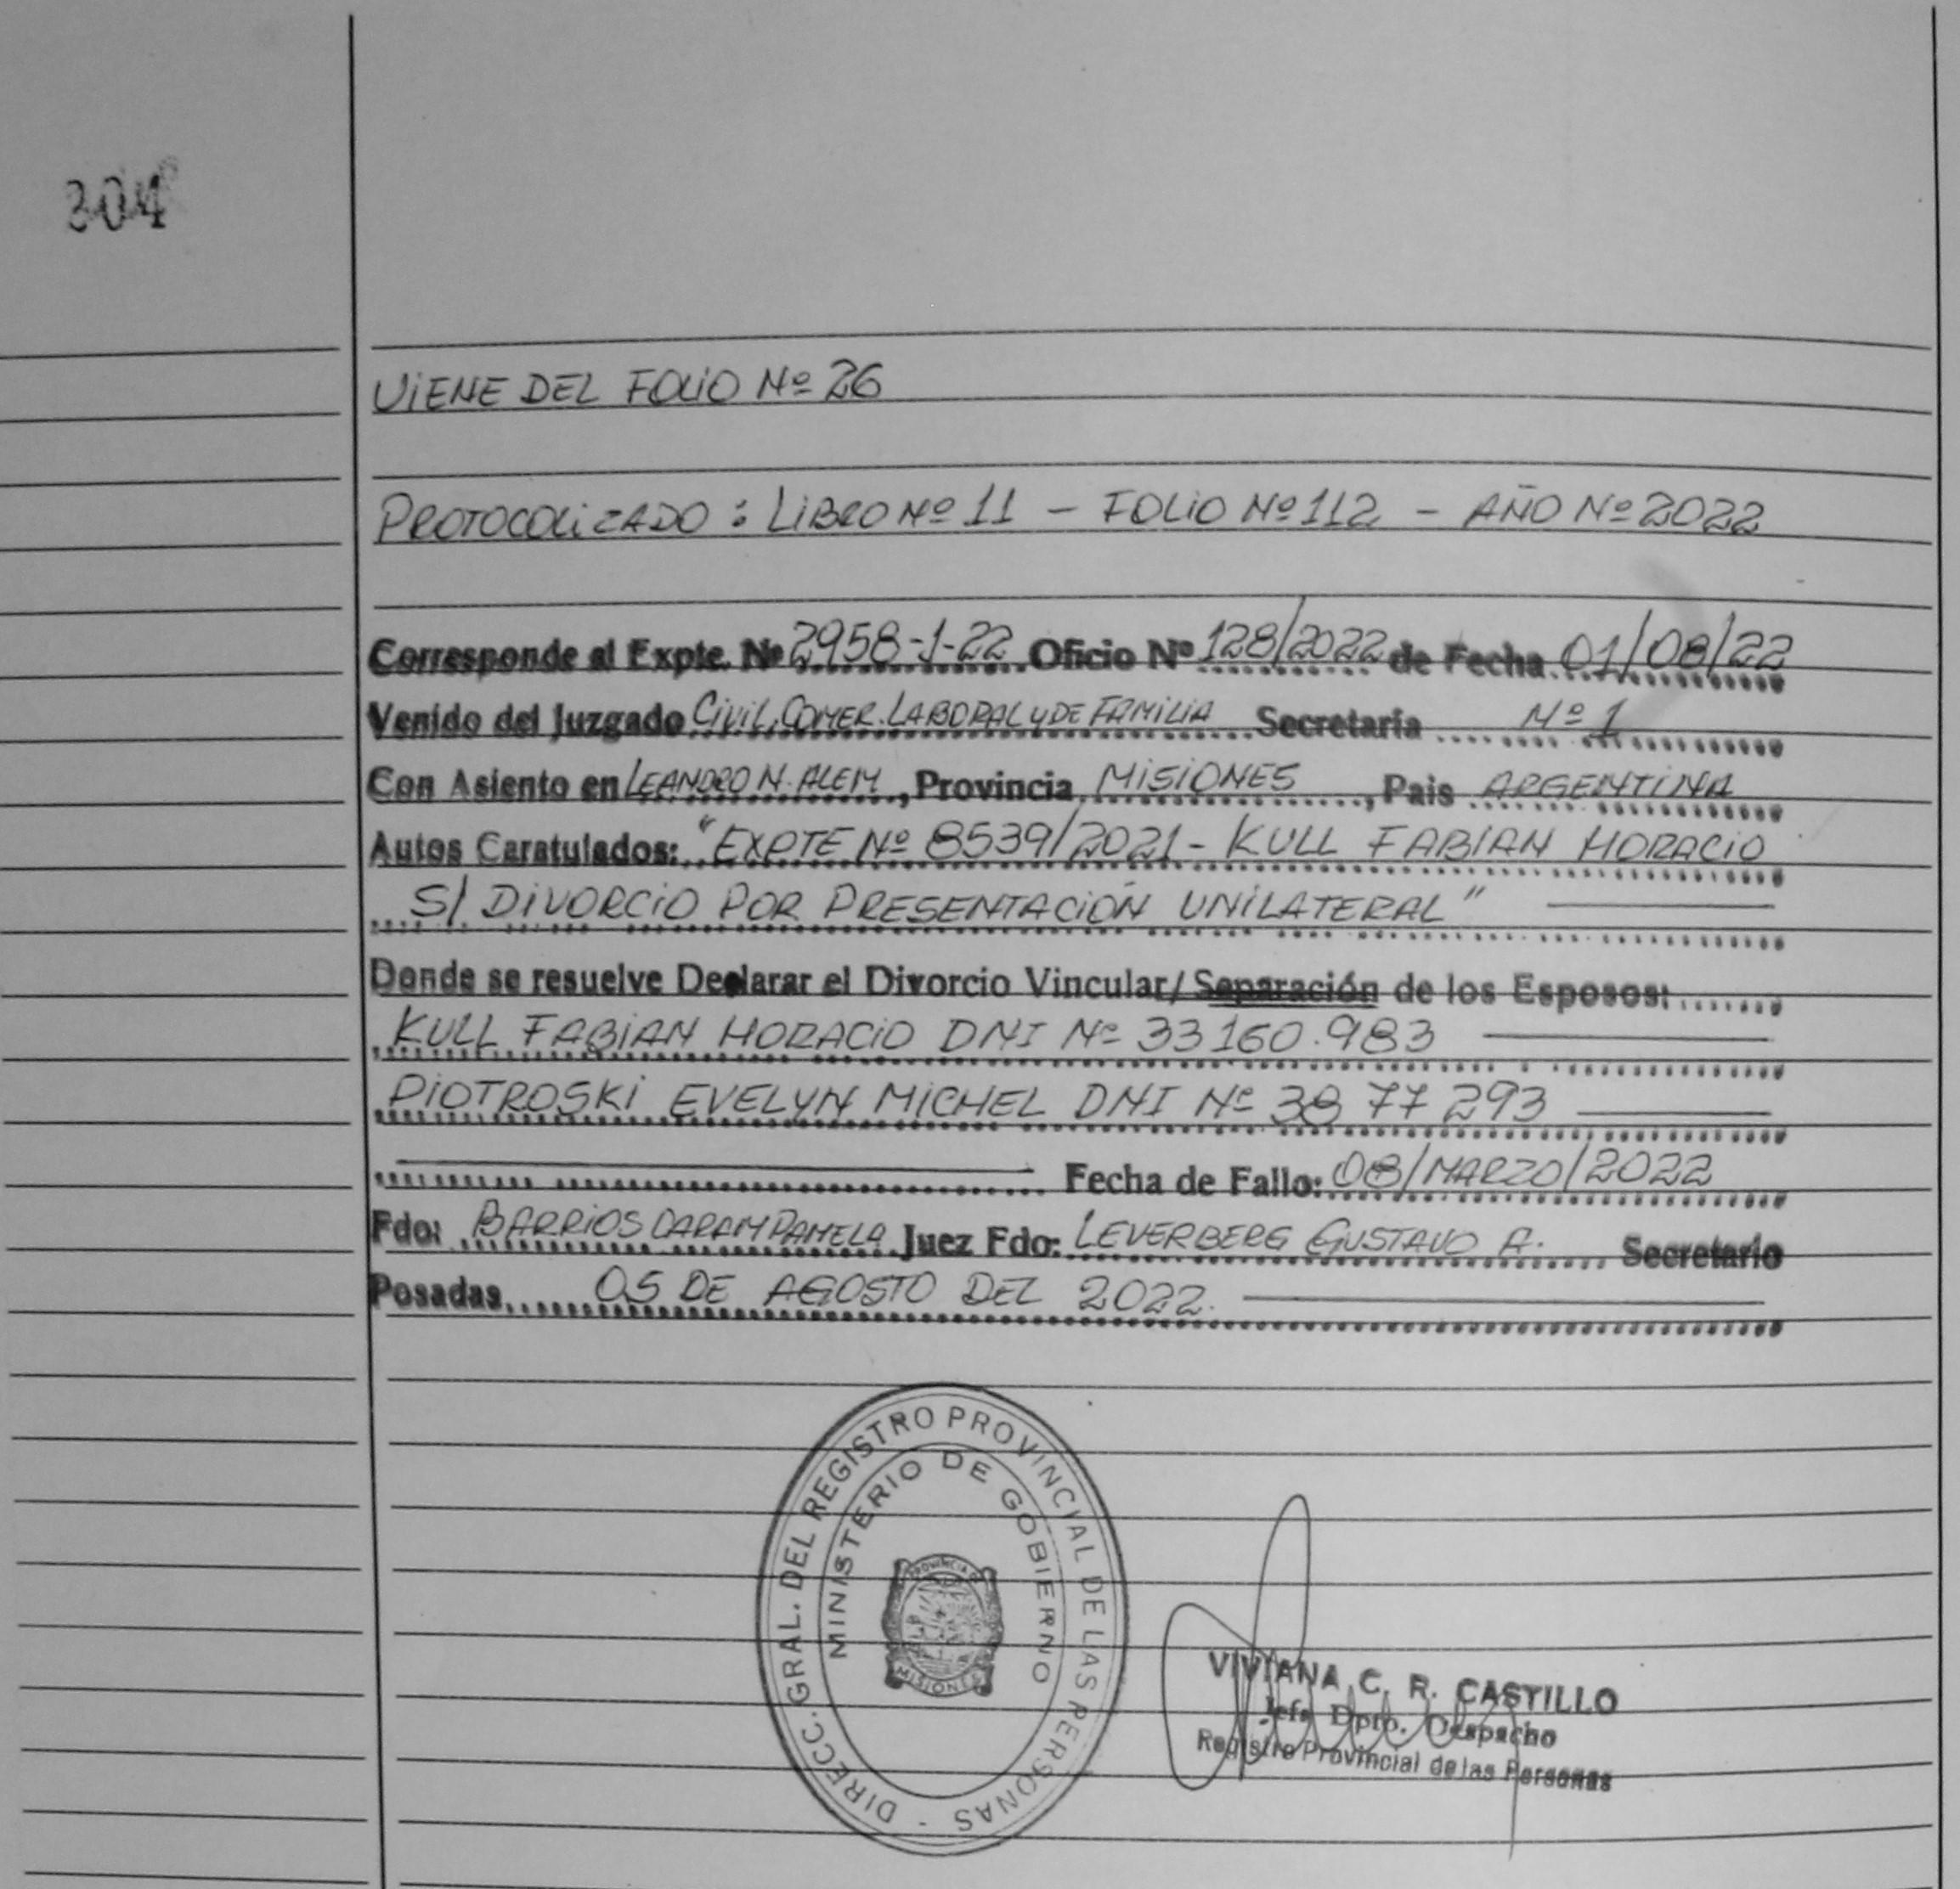 304
VIENE DEL FOLIO Nº 26
PROTOCOLIZADO : LIBRO Nº 11 – FOLIO Nº 112 – AÑO Nº 2022
Corresponde al Expte. Nº 2958-1-22 Oficio Nº 128/2022 de Fecha 01/08/22
Venido del Juzgado CIVIL, COMER. LABORAL Y DE FAMILIA Secretaría Nº 1
Con Asiento en LEANDRO N. ALEM, Provincia MISIONES, Pais ARGENTINA
Autos Caratulados: "EXPTE Nº 8539/2021 - KULL FABIAN HORACIO
S/ DIVORCIO POR PRESENTACIÓN UNILATERAL"
Donde se resuelve Declarar el Divorcio Vincular/ Separación de los Esposos:
KULL FABIAN HORACIO DNI Nº 33 160.983
PIOTROSKI EVELYN MICHEL DNI Nº 38 77 293
Fecha de Fallo: 08/MARZO/2022
Fdo: BARRIOS PAMELA Juez Fdo: LEVERBERG GUSTAVO A. Secretario
Posadas 05 DE AGOSTO DEL 2022.
DIRECC. GRAL. DEL REGISTRO PROVINCIAL DE LAS PERSONAS -
MINISTERIO DE GOBIERNO
PROVINCIA DE
MISIONES
VIVIANA C. R. CASTILLO
Jefa Dpto. Despacho
Registro Provincial de las Personas